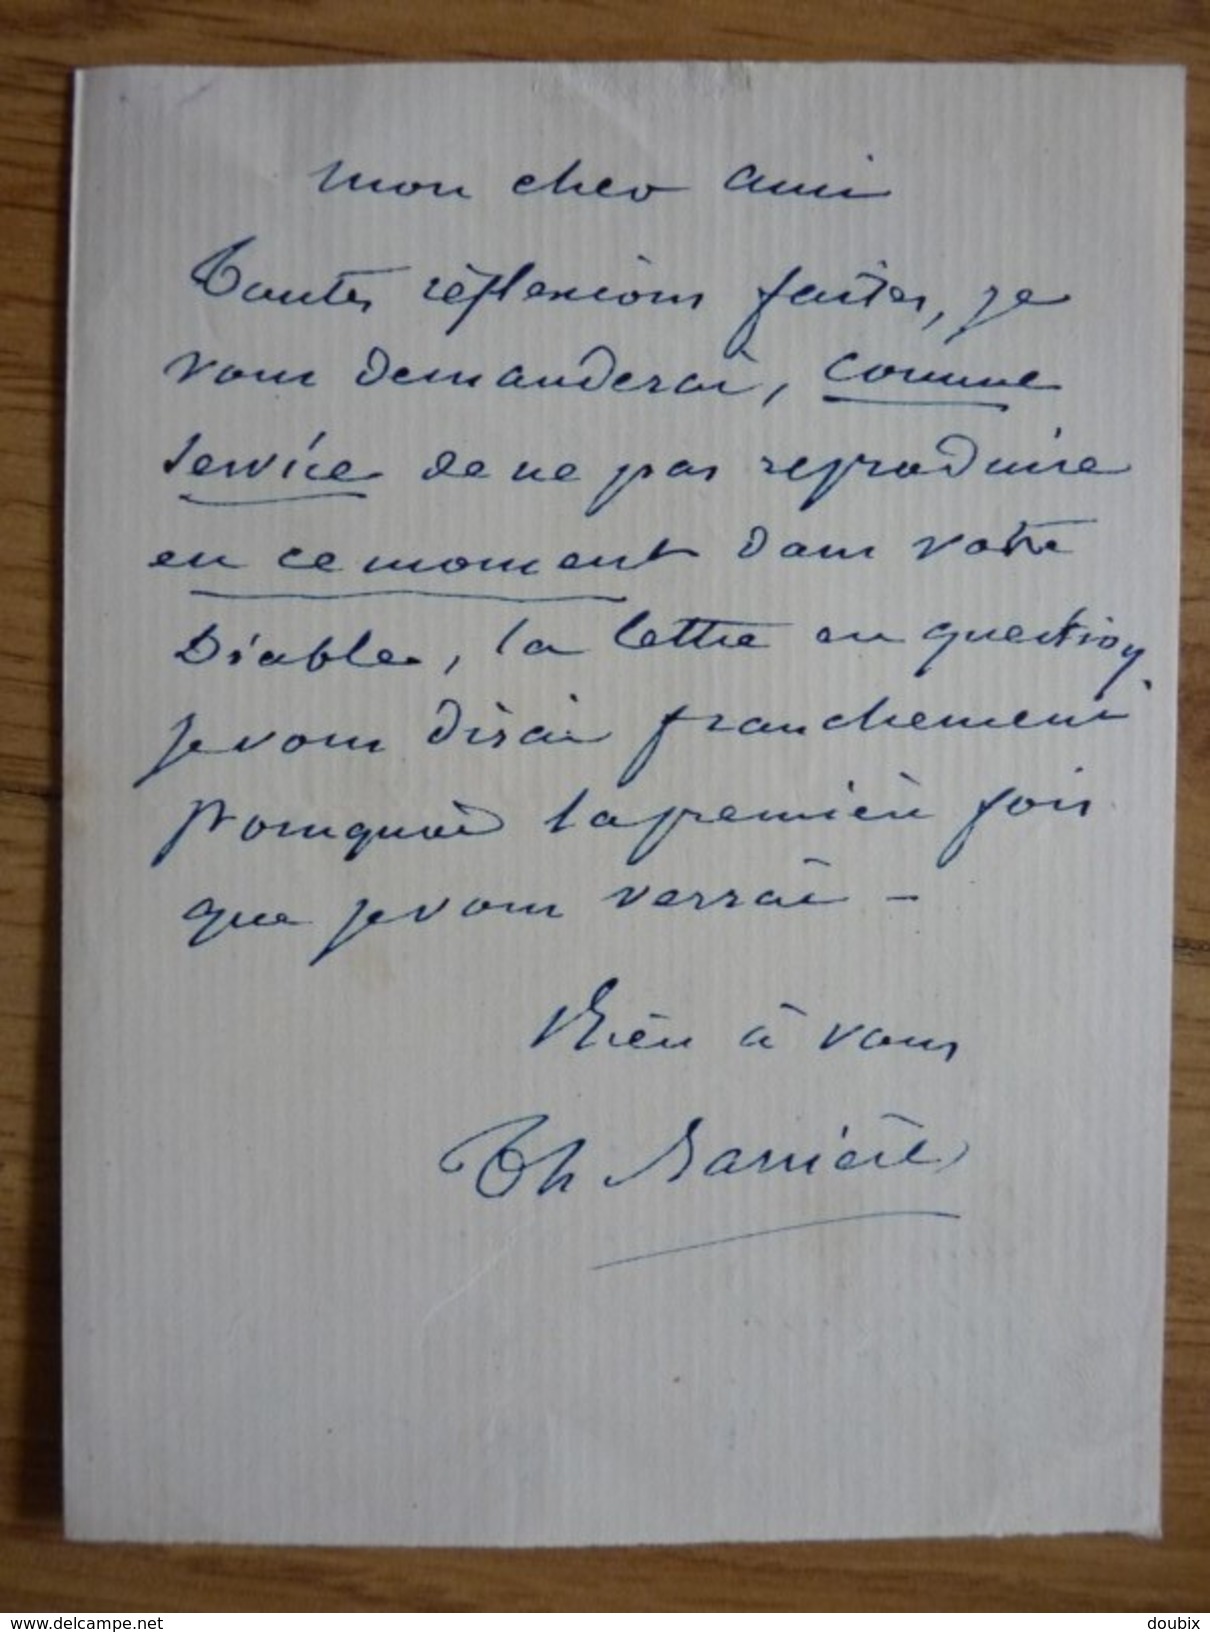 mon cher ami
Toutes réflexions faites, je
vous demanderai, comme
service de ne pas reproduire
en ce moment dans votre
Diable, la lettre en question,
je vous dirai franchement
pourquoi la première fois
que je vous verrai –
Bien à vous
Th Barrière
delcampe.net
doubix